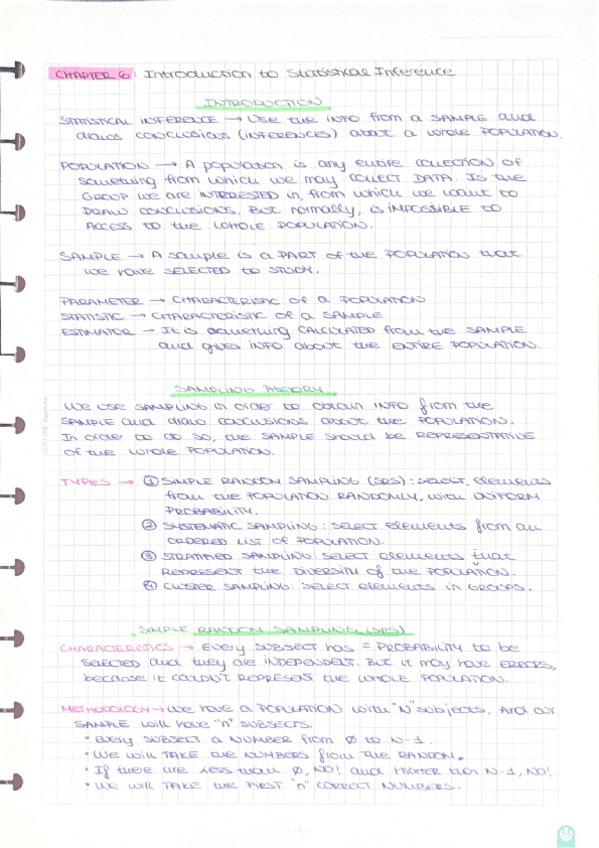 CHAPTER 6: Introduction to Statistical Inference
INTRODUCTION
STATISTICAL INFERENCE → Use the INFO from a SAMPLE and
draws CONCLUSIONS (INFERENCES) about a whole POPULATION.
POPULATION → A population is any entire COLLECTION of
something from which we may COLLECT DATA. Is the
GROUP we are INTERESTED in, from which we want to
DRAW CONCLUSIONS. But normally, is IMPOSSIBLE to
ACCESS to the WHOLE POPULATION.
SAMPLE → A sample is a PART of the POPULATION that
we have SELECTED to STUDY.
PARAMETER → CHARACTERISTIC of a POPULATION
STATISTIC → CHARACTERISTIC of a SAMPLE
ESTIMATOR → It is something CALCULATED from the SAMPLE
and gives INFO about the ENTIRE POPULATION.
SAMPLING THEORY
We use SAMPLING in order to obtain INFO from the
SAMPLE and draw conclusions about the POPULATION.
In order to do so, the SAMPLE should be REPRESENTATIVE
of the whole POPULATION.
TYPES → ① SIMPLE RANDOM SAMPLING (SRS): SELECT elements
from the POPULATION RANDOMLY, with UNIFORM
PROBABILITY.
② SYSTEMATIC SAMPLING: SELECT elements from an
ORDERED LIST of POPULATION.
③ STRATIFIED SAMPLING: SELECT elements that
REPRESENT the DIVERSITY of the POPULATION.
④ CLUSTER SAMPLING: SELECT elements in GROUPS.
SIMPLE RANDOM SAMPLING (SRS)
CHARACTERISTICS → Every SUBJECT has = PROBABILITY to be
SELECTED and they are INDEPENDENT. But it may have ERRORS,
because it couldn't REPRESENT the whole POPULATION.
METHODOLOGY → We have a POPULATION with "N" subjects. And our
SAMPLE will have "n" SUBJECTS.
• Every SUBJECT a NUMBER from 0 to N-1.
• We will TAKE the NUMBERS from the RANDOM.
• If there are LESS than 0, NO! and HIGHER than N-1, NO!
• We will TAKE the FIRST "n" CORRECT NUMBERS.